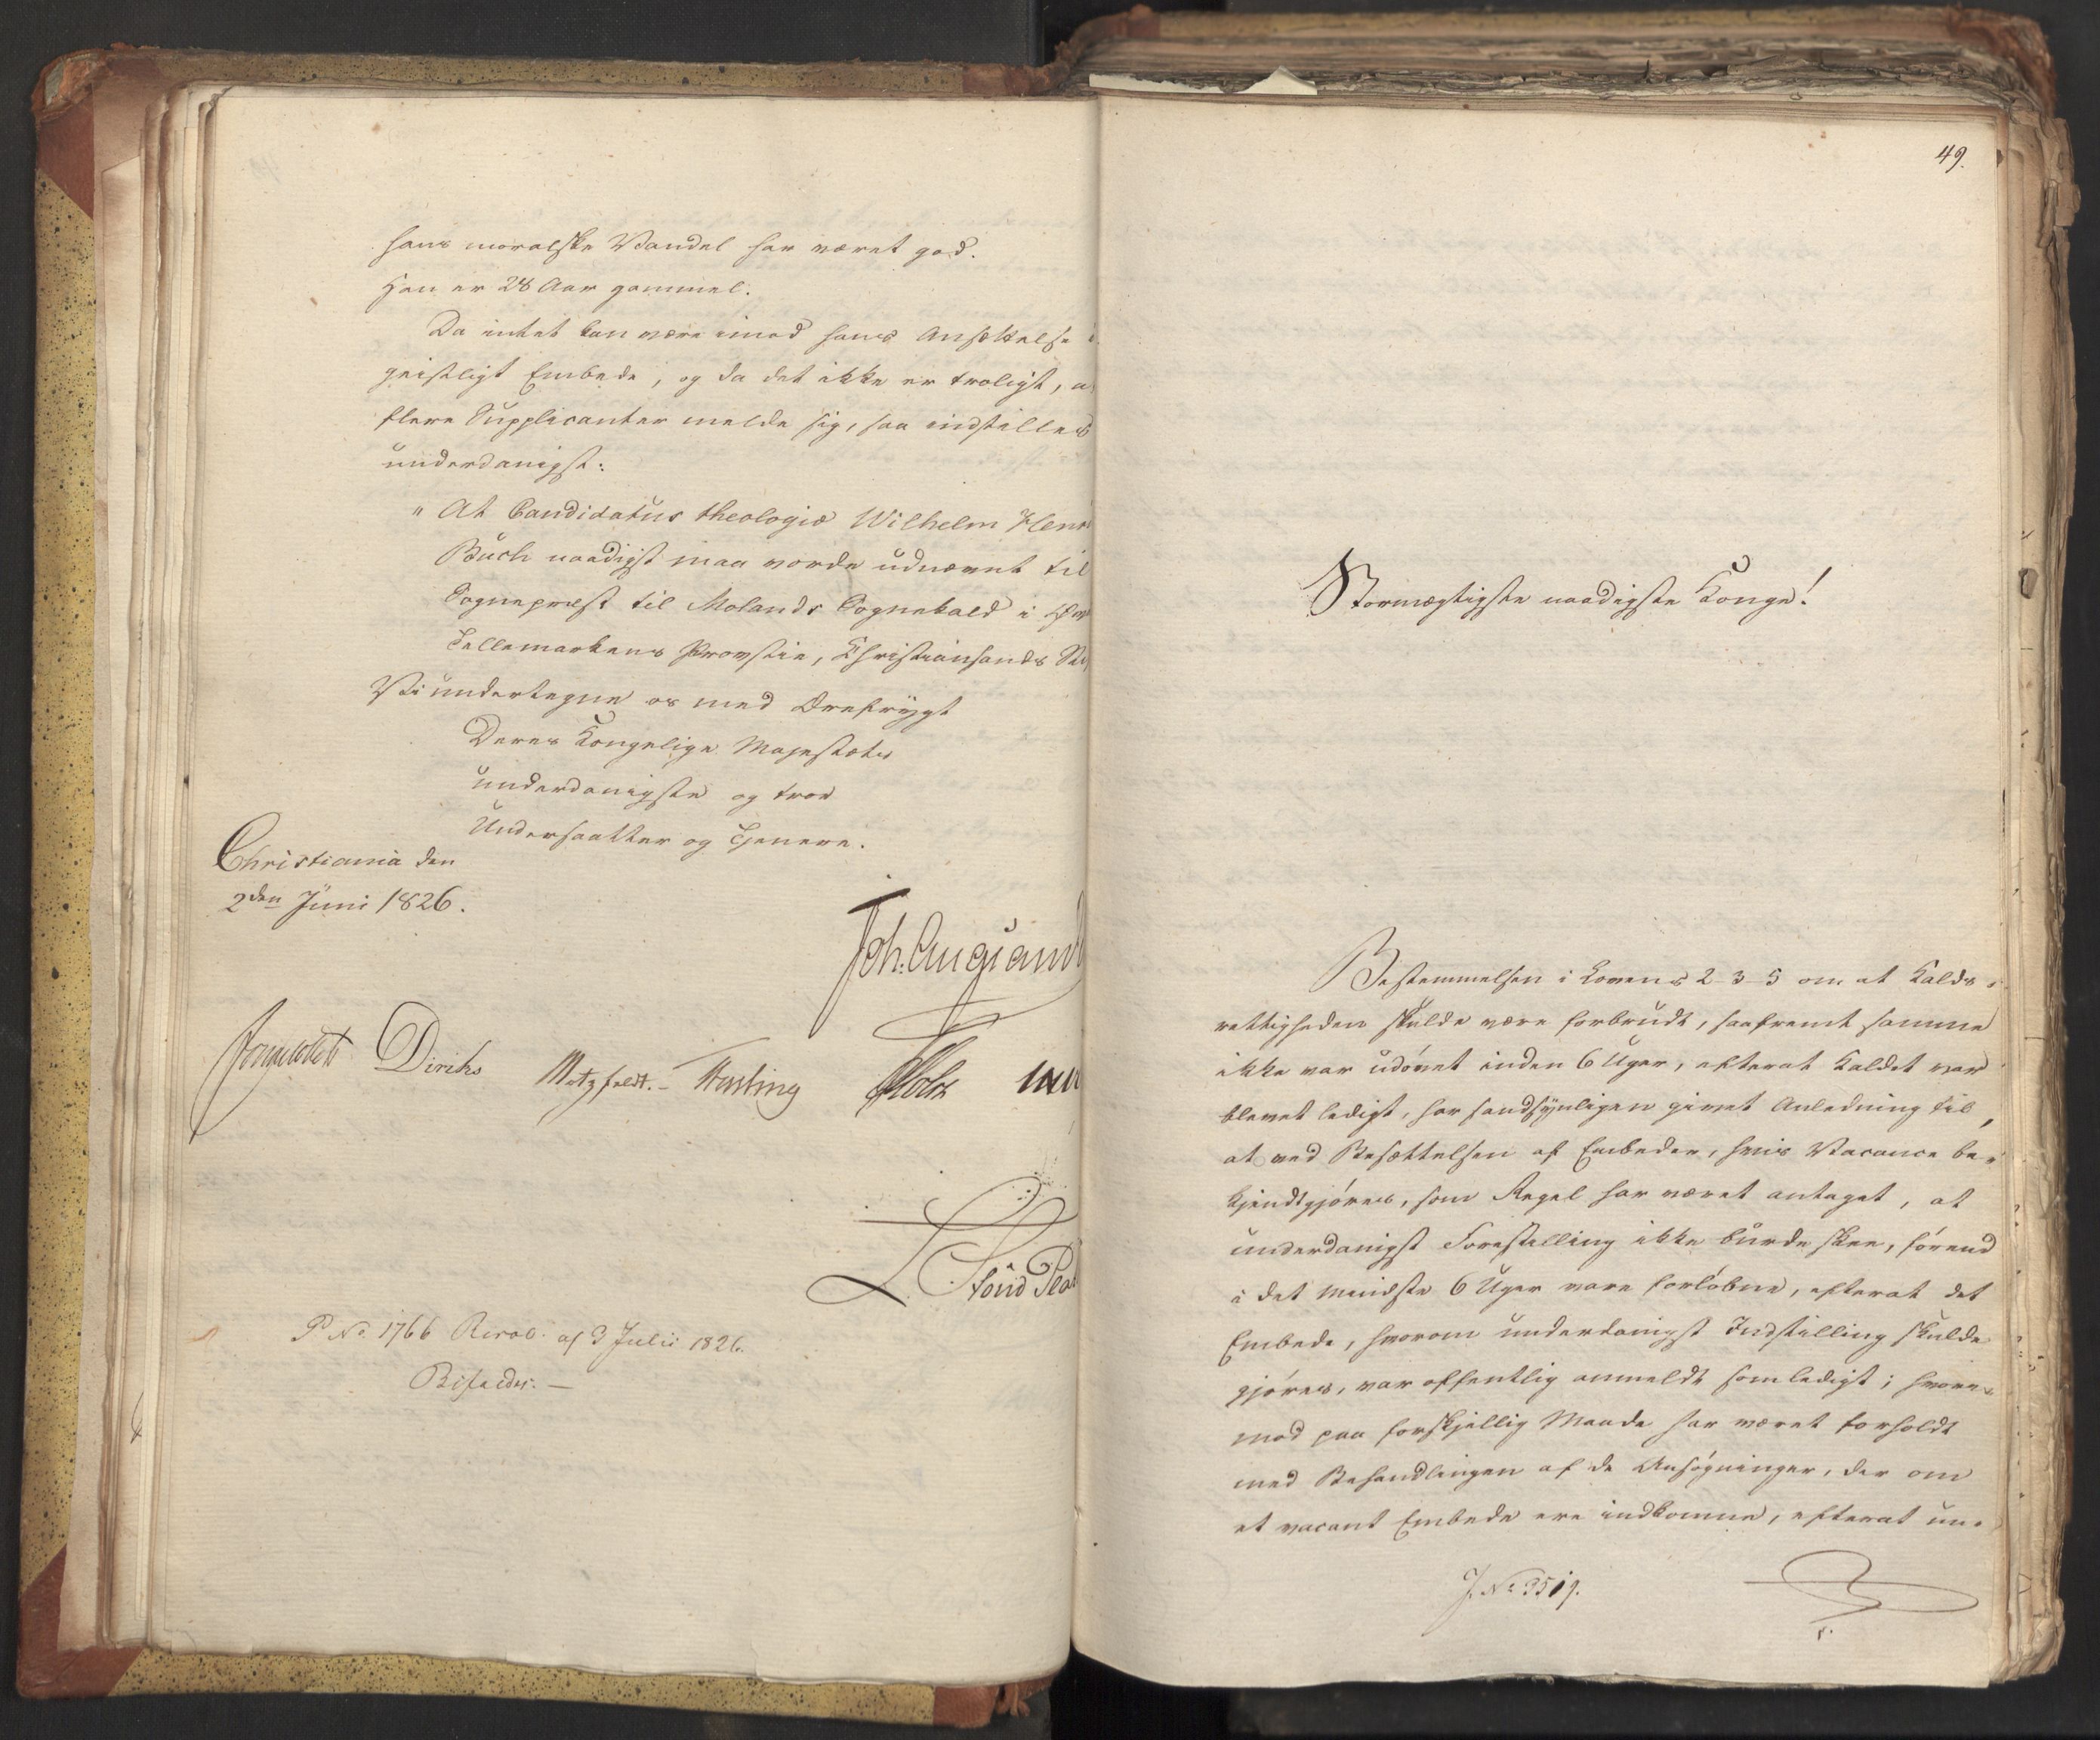 hans moralske Vandel har været god.
Han er 28 Aar gammel.
Da intet kan være imod hans Ansættelse i
geistligt Embede, og da det ikke er troligt, a
flere Supplicanter melde sig, saa indstilles
underdanigst:
" At Candidatus theologiæ Wilhelm Henr
Buch naadigst maa vorde udnævnt til
Sognepræst til Molands Sognekald i
Tellemarkens Provstie, Christiansands Sti
Vi undertegne os med Ærefrygt
Deres Kongelige Majestæts
underdanigste og troe
Undersaatter og Tjenere.
Christiania den
2den Juni 1826.
Diriks Motzfeldt. Holst
P No. 1766 Resol. af 3 Julii 1826.
Bifaldes. —
49.
Stormægtigste naadigste Konge!
Bestemmelsen i Lovens 2-3-5 om at Kalds-
rettigheden skulde være forbrudt, saafremt samme
ikke var udøvet inden 6 Uger, efterat Kaldet var
blevet ledigt, har sandsynligen givet Anledning til,
at ved Besættelsen af Embeder, hvis Vacance be-
kjendtgjøres, som Regel har været antaget, at
underdanigst Forestilling ikke burde skee, førend
i det mindste 6 Uger vare forløbne, efterat det
Embede, hvorom underdanigst Indstilling skulde
gjøres, var offentlig anmeldt som ledigt; hvori-
mod paa forskjellig Maade har været forholdt
med Behandlingen af de Ansøgninger, der om
et vacant Embede ere indkomne, efterat un-
J. No 3519.